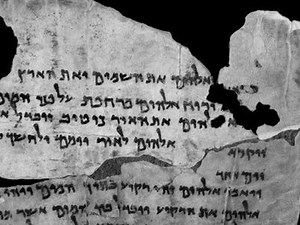 אלהים את השמים ואת הארץ
ורוח אלהים מרחפת על פני המים
אלהים את האור כי טוב ויבדל
אלהים לאור יומם ולחשך
ויקרא
יום אחד
ויאמר אלהים יהי רקיע בתוך המים ויהי
אלהים את הרקיע ויבדל בין המים אשר